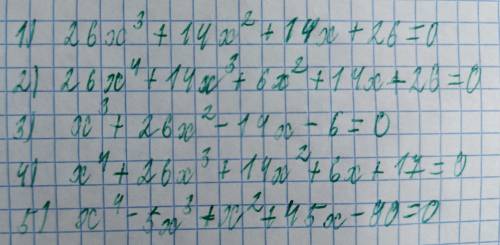 1) 26x³ + 14x² + 14x + 26 = 0
2) 26x⁴ + 14x³ + 6x² + 14x + 26 = 0
3) x³ + 26x² - 14x - 6 = 0
4) x⁴ + 26x³ + 14x² + 6x + 17 = 0
5) x⁴ - 5x³ + x² + 45x - 90 = 0